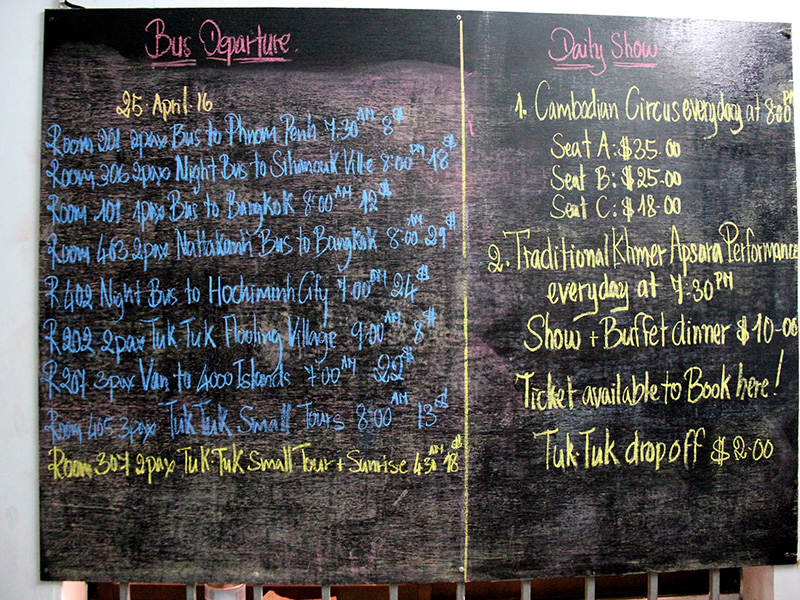 Bus Departure.
25 April 16
Room 201 2pax Bus to Phnom Penh 7.30 AM 8$
Room 306 2pax Night Bus to Sihanouk Ville 8:00 PM 18$
Room 101 1pax Bus to Bangkok 8:00 AM 12$
Room 403 2pax Nattakamh Bus to Bangkok 8:00 AM 29$
R 402 Night Bus to Hochiminh City 7:00 AM 24$
R202 2pax Tuk Tuk Flooting Village 9:00 AM 8$
R201 3pax Van to 4000 Islands 7:00 AM 22$
Room 405 3pax Tuk Tuk Small Tours 8:00 AM 13$
Room 307 2pax Tuk-Tuk Small Tour + Sunrise 4:30 AM 18$
Daily Show
1. Cambodian Circus everyday at 8:00 PM
Seat A: $35.00
Seat B: $25.00
Seat C: $18.00
2. Traditional Khmer Apsara Performance
everyday at 7.30 PM
Show + Buffet dinner $10.00
Ticket available to Book here!
Tuk-Tuk drop off $2.00